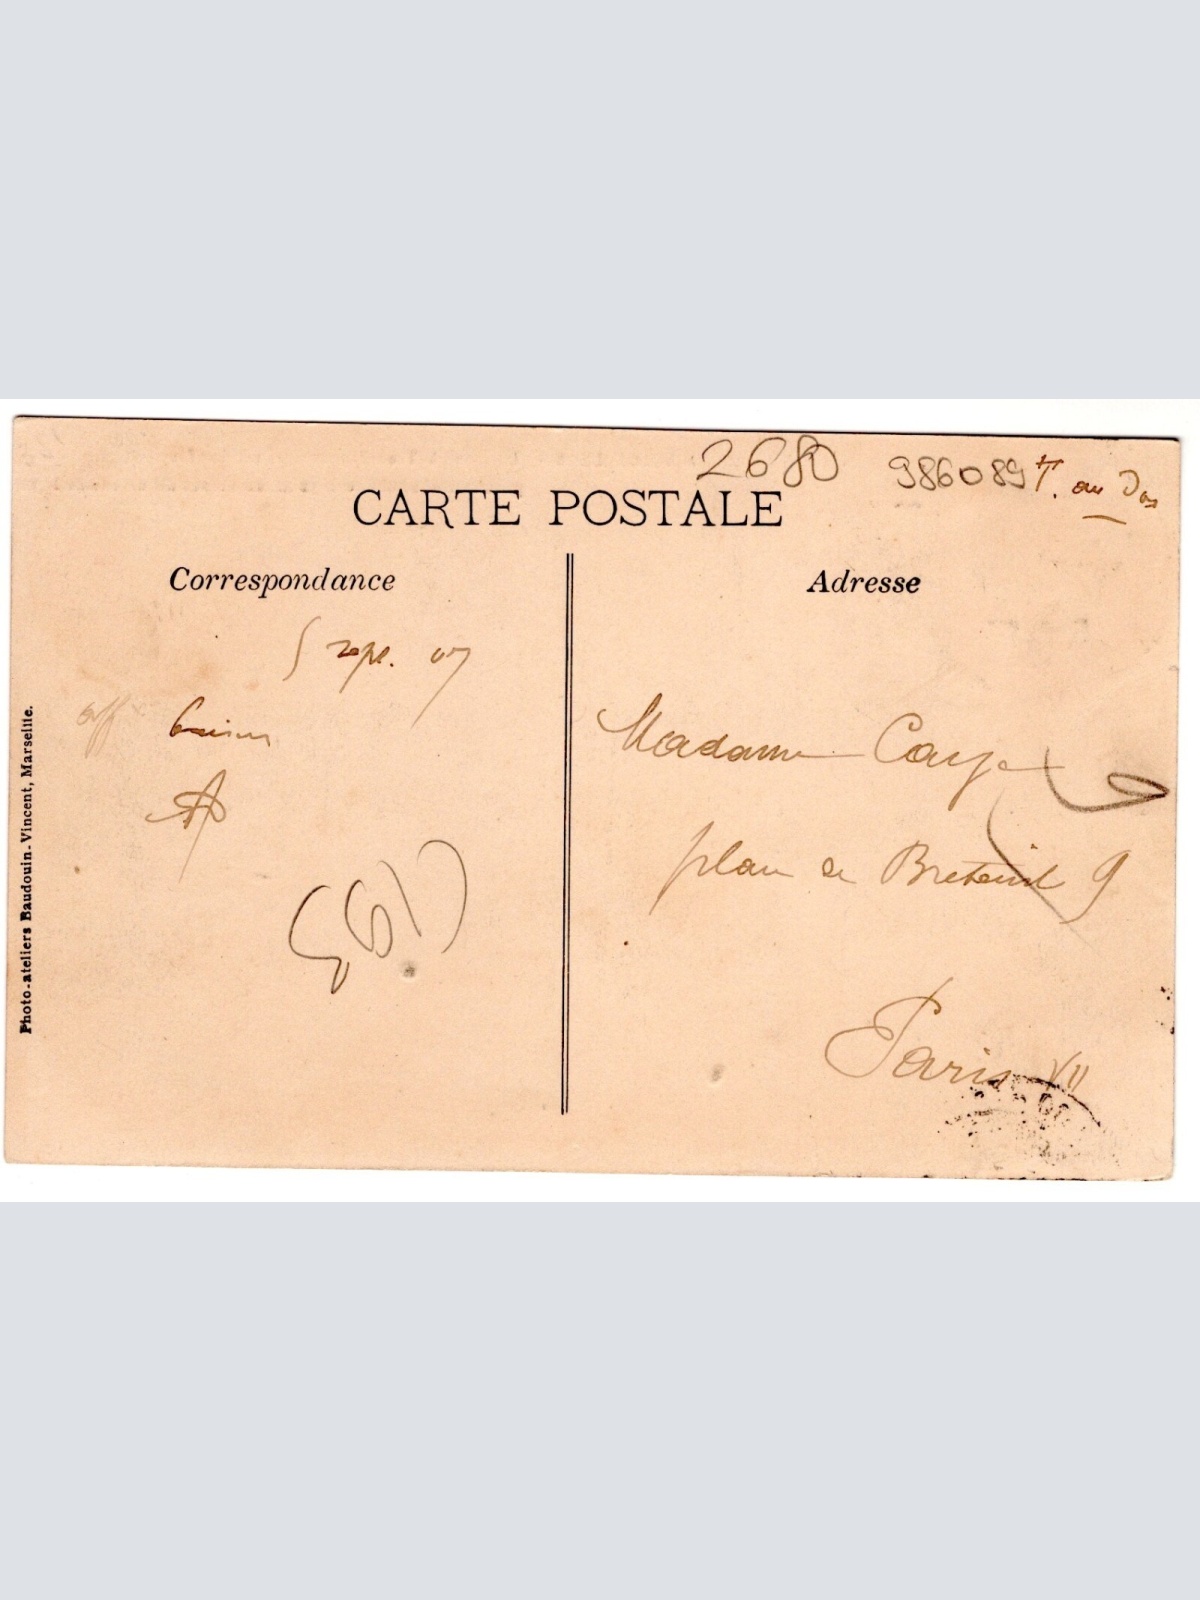 2680 986089 T. au Dos
CARTE POSTALE
Correspondance
Adresse
5 sept. 07
aff
A
Madame
place de Breteuil 9
Paris VII
Photo-ateliers Baudouin-Vincent, Marseille.